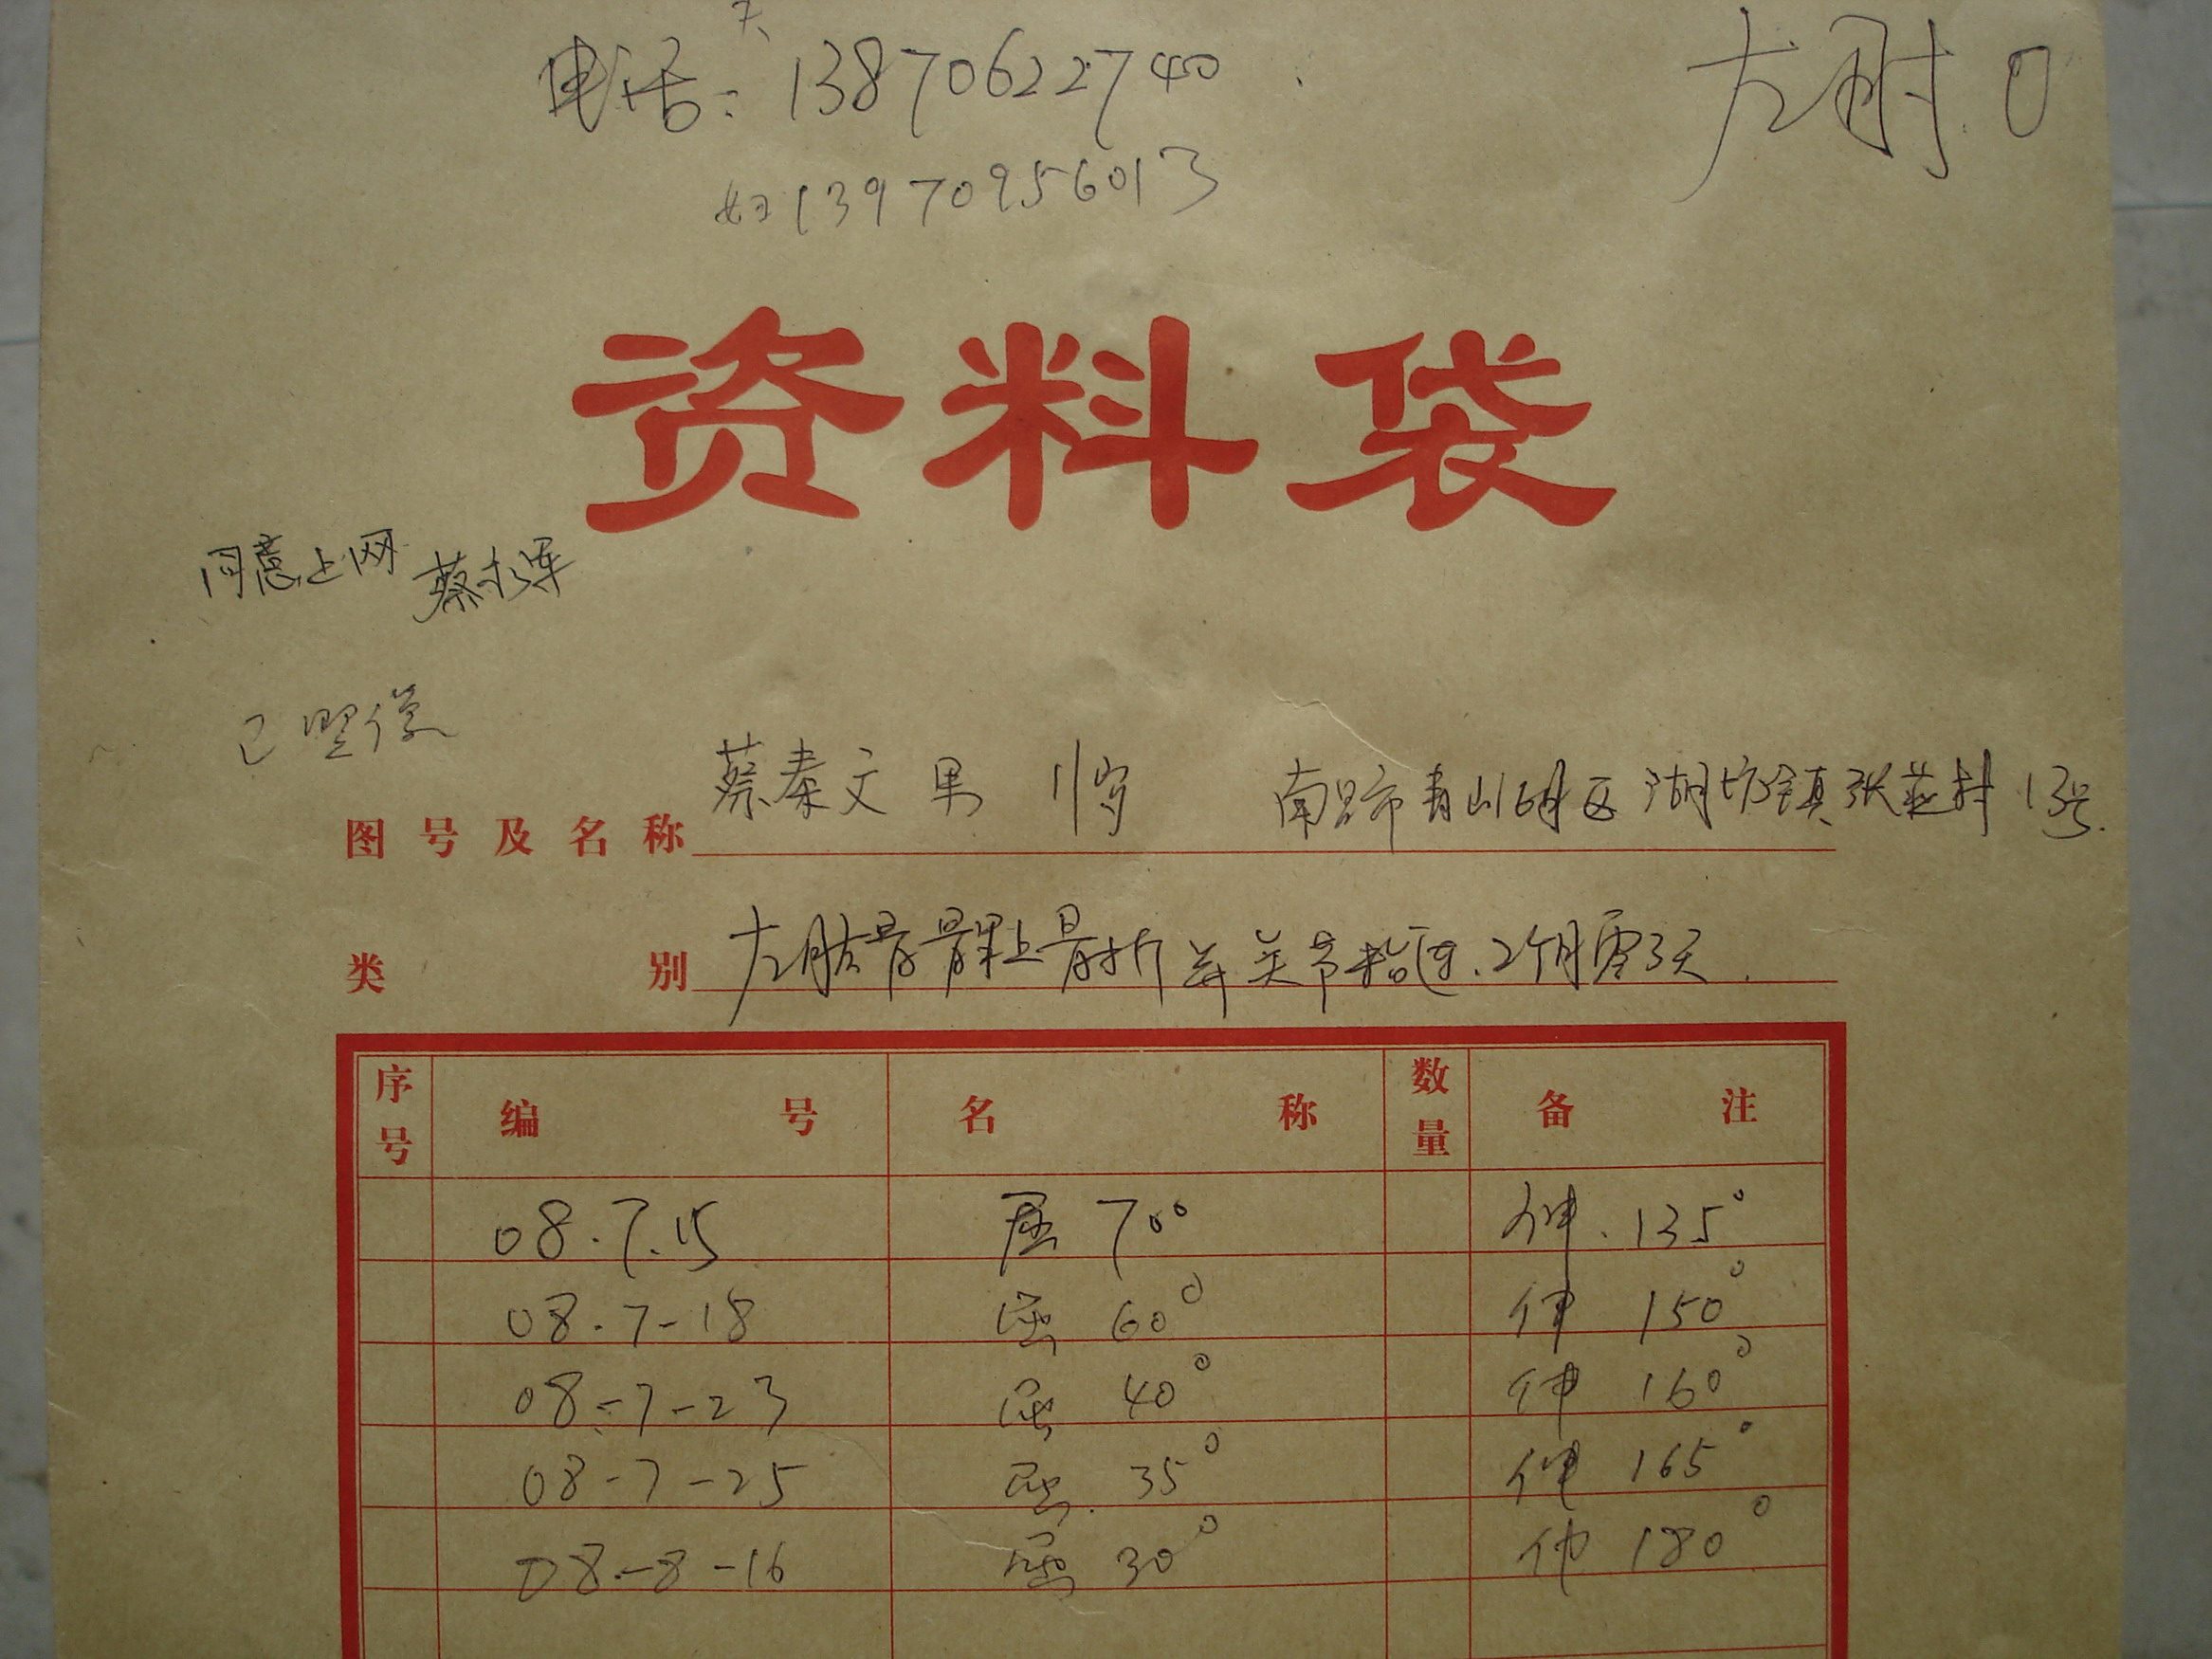 电话: 13870622740
左肘.0
13970956013
资料袋
同意上网 蔡
已
蔡秦文 男 11岁 南昌市青山湖区湖坊镇张莊村13号.
图号及名称
类别 左肱骨髁上骨折并关节 .2个月零3天.
序号 编号 名称 数量 备注
08.7.15 屈 70° 伸.135°
08.7-18 屈 60° 伸 150°
08-7-23 屈 40° 伸 160°
08-7-25 屈.35° 伸 165°
08-8-16 屈 30° 伸 180°